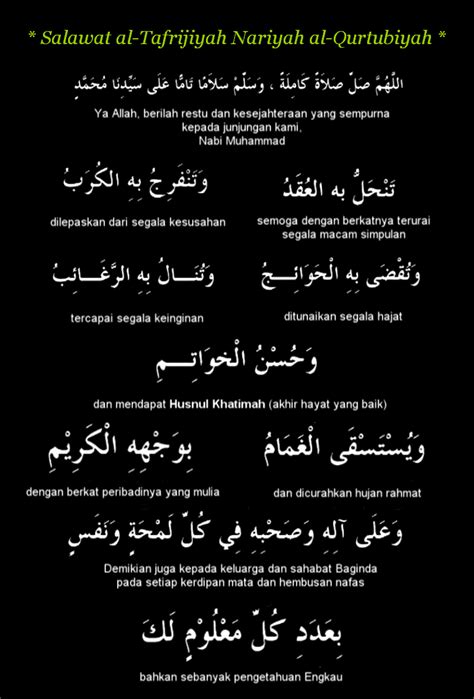 * Salawat al-Tafrijiyah Nariyah al-Qurtubiyah *
اللَّهُمَّ صَلِّ صَلَاةً كَامِلَةً ، وَسَلِّمْ سَلَامًا تَامًّا عَلَى سَيِّدِنَا مُحَمَّدٍ
Ya Allah, berilah restu dan kesejahteraan yang sempurna
kepada junjungan kami,
Nabi Muhammad
تَنْحَلُّ بِهِ العُقَدُ
semoga dengan berkatnya terurai
segala macam simpulan
وَتَنْفَرِجُ بِهِ الْكُرَبُ
dilepaskan dari segala kesusahan
وَتُقْضَى بِهِ الْحَوَائِجُ
ditunaikan segala hajat
وَتُنَالُ بِهِ الرَّغَائِبُ
tercapai segala keinginan
وَحُسْنُ الْخَوَاتِمِ
dan mendapat Husnul Khatimah (akhir hayat yang baik)
وَيُسْتَسْقَى الْغَمَامُ
dan dicurahkan hujan rahmat
بِوَجْهِهِ الْكَرِيْمِ
dengan berkat peribadinya yang mulia
وَعَلَى آلِهِ وَصَحْبِهِ فِي كُلِّ لَمْحَةٍ وَنَفَسٍ
Demikian juga kepada keluarga dan sahabat Baginda
pada setiap kerdipan mata dan hembusan nafas
بِعَدَدِ كُلِّ مَعْلُوْمٍ لَكَ
bahkan sebanyak pengetahuan Engkau